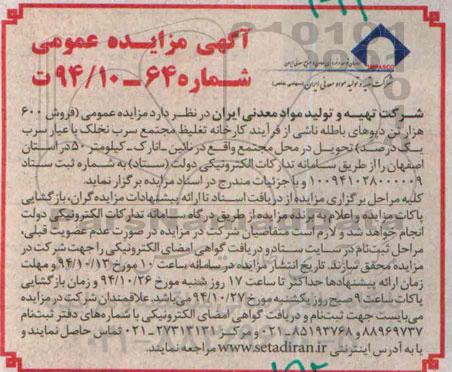 آگهی مزایده عمومی
شماره ۶۴-۹۴/۱۰ت
IMPASCO
شرکت تهیه و تولید مواد معدنی ایران (سهامی خاص)
شرکت تهیه و تولید مواد معدنی ایران در نظر دارد مزایده عمومی (فروش ۶۰۰
هزار تن دپوهای باطله ناشی از فرآیند کارخانه تغلیظ مجتمع سرب نخلک با عیار سرب
یک درصد) تحویل در محل مجتمع واقع در نائین ـ انارک ـ کیلومتر ۵۰ در استان
اصفهان را از طریق سامانه تدارکات الکترونیکی دولت (ستاد) به شماره ثبت ستاد
۱۰۰۹۴۱۰۲۸۰۰۰۰۰۹ و با جزئیات مندرج در اسناد مزایده برگزار نماید.
کلیه مراحل برگزاری مزایده از دریافت اسناد تا ارائه پیشنهادات مزایده‌گران، بازگشایی
پاکات مزایده و اعلام به برنده مزایده از طریق درگاه سامانه تدارکات الکترونیکی دولت
انجام خواهد شد و لازم است متقاضیان شرکت در مزایده در صورت عدم عضویت قبلی،
مراحل ثبت‌نام در سایت ستاد و دریافت گواهی امضای الکترونیکی را جهت شرکت در
مزایده محقق سازند. تاریخ انتشار مزایده در سامانه ساعت ۱۰ مورخ ۹۴/۱۰/۱۳ و مهلت
زمان ارائه پیشنهادها حداکثر تا ساعت ۱۷ روز شنبه مورخ ۹۴/۱۰/۲۶ و زمان بازگشایی
پاکات ساعت ۹ صبح روز یکشنبه مورخ ۹۴/۱۰/۲۷ می‌باشد. علاقمندان شرکت در مزایده
می‌بایست جهت ثبت‌نام و دریافت گواهی امضای الکترونیکی با شماره‌های دفتر ثبت‌نام
۸۸۹۶۹۷۳۷ و ۸۵۱۹۳۷۶۸-۰۲۱ و مرکز ۲۷۳۱۳۱۳۱-۰۲۱ تماس حاصل نمایند و
یا به آدرس اینترنتی www.setadiran.ir مراجعه نمایند.